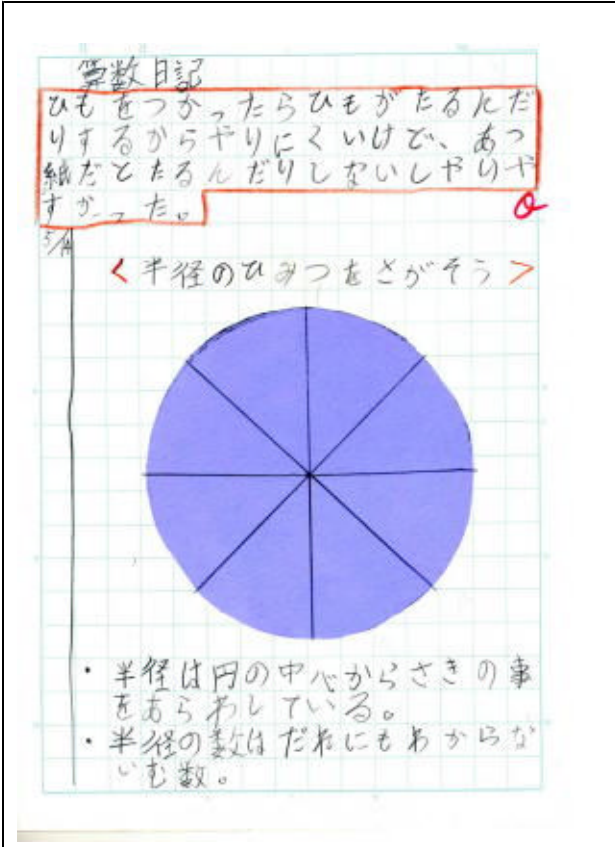 算数日記
ひもをつかったらひもがたるんだ
りするからやりにくいけど、あつ
紙だとたるんだりしないしやりや
すかった。
5/14
<半径のひみつをさがそう>
・半径は円の中心からさきの事
をあらわしている。
・半径の数はだれにもわからな
いむ数。